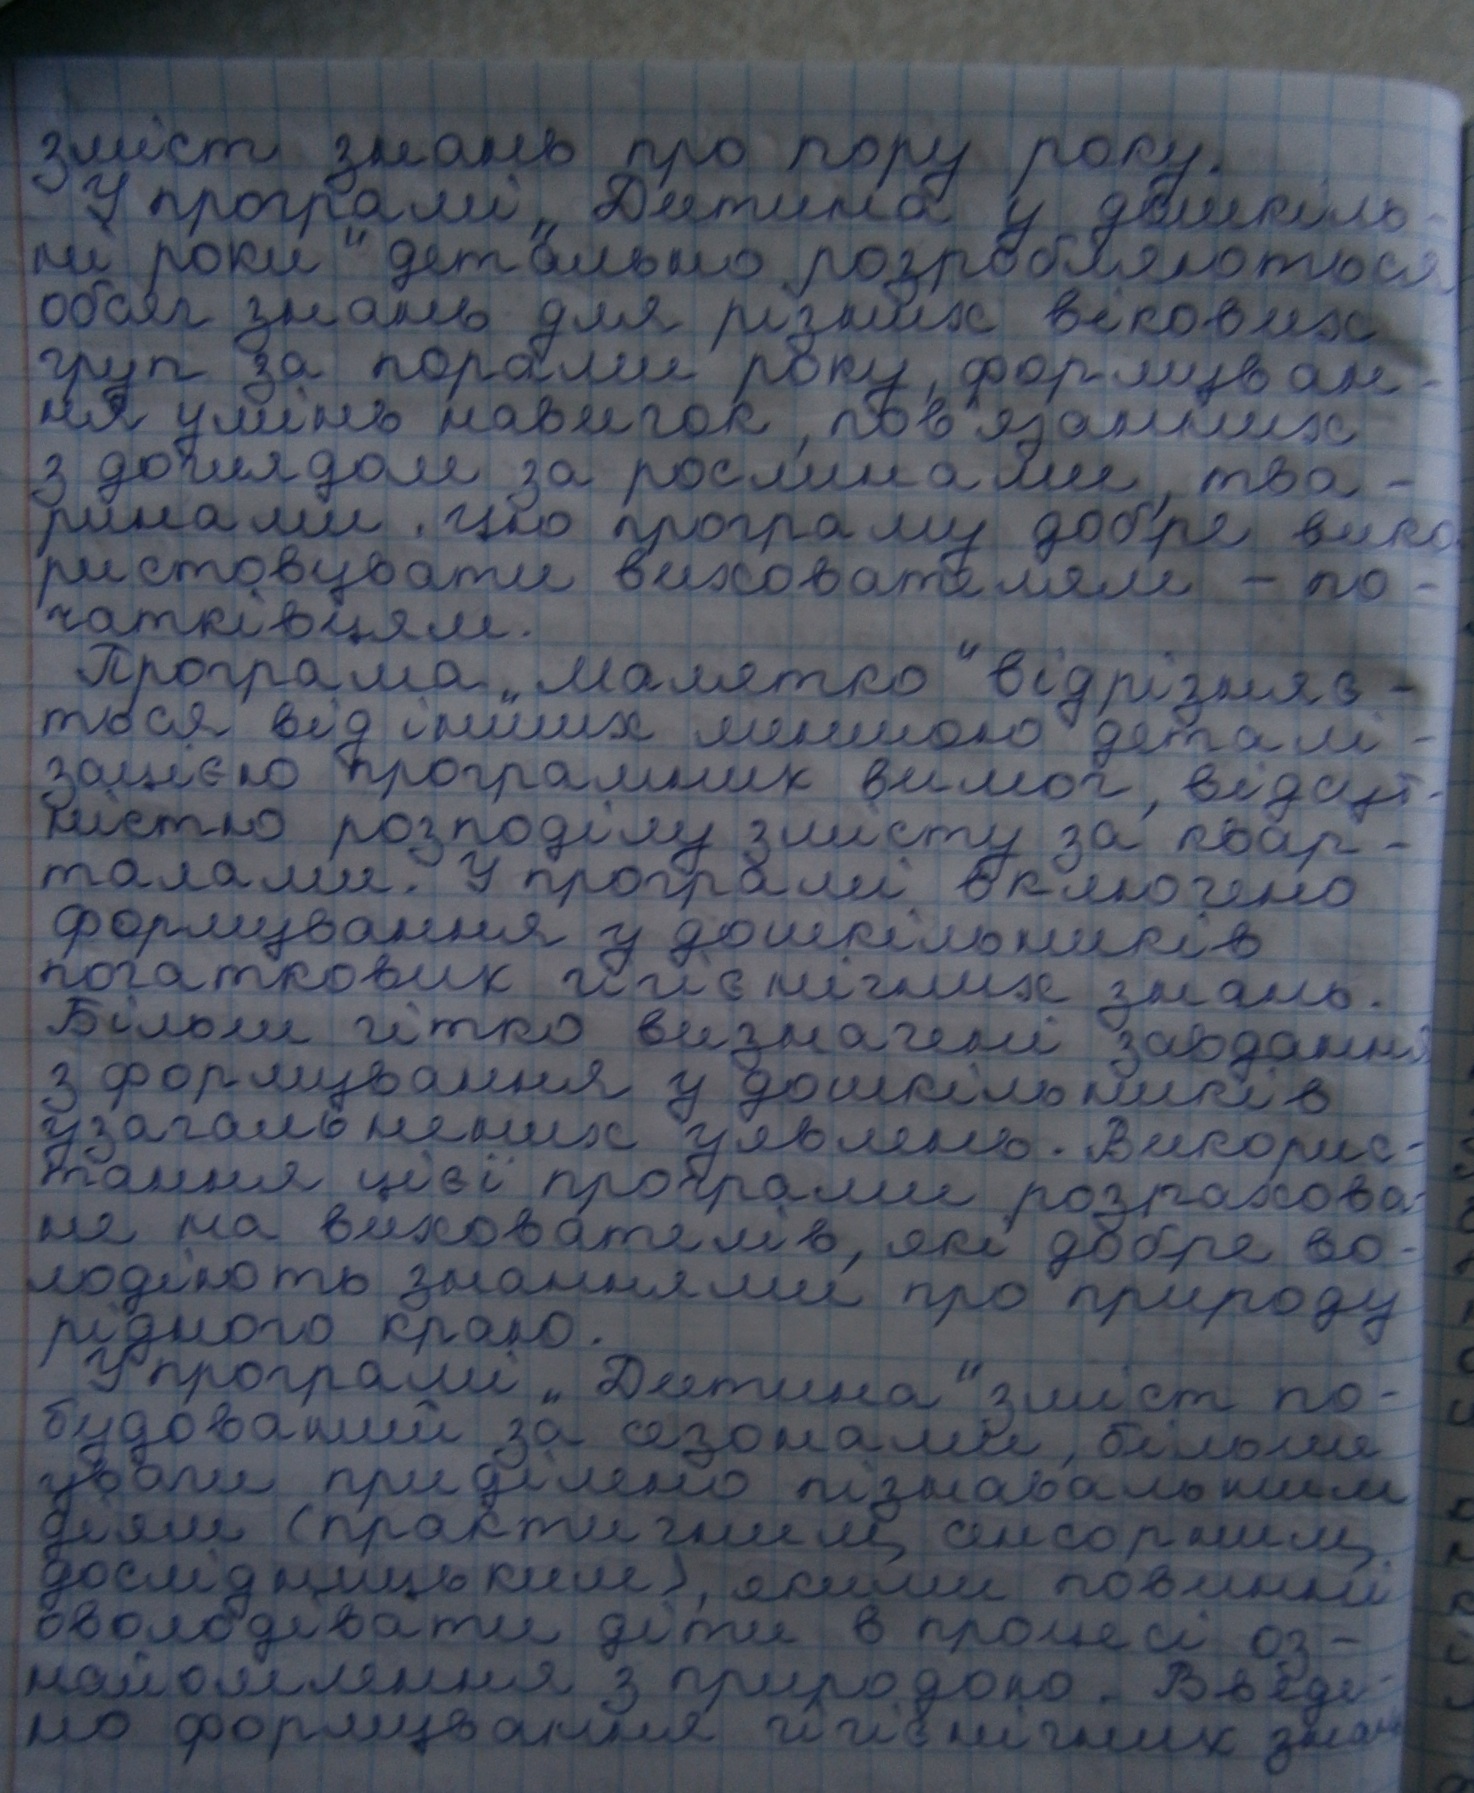 зміст знань про пору року.
У програмі „Дитина у дошкіль-
ні роки" детально розробляються
обсяг знань для різних вікових
груп за порами року, формуван-
ня умінь навичок, пов'язаних
з доглядом за рослинами, тва-
ринами. Цю програму добре вико
ристовувати вихователям - по-
чатківцям.
Програма „Малятко" відрізняє-
ться від інших меншою деталі-
зацією програмних вимог, відсут-
ністю розподілу змісту за квар-
талами. У програмі включено
формування у дошкільників
початкових гігієнічних знань.
Більш чітко визначені завдання
з формування у дошкільників
узагальнених уявлень. Викорис-
тання цієї програми розрахова-
не на вихователів, які добре во-
лодіють знаннями про природу
рідного краю.
У програмі „Дитина" зміст по-
будований за сезонами, більше
уваги приділено пізнавальним
діям (практичним, сенсорним,
дослідницьким), якими повинні
оволодівати діти в процесі оз-
найомлення з природою. Введе-
но формування гігієнічних знань